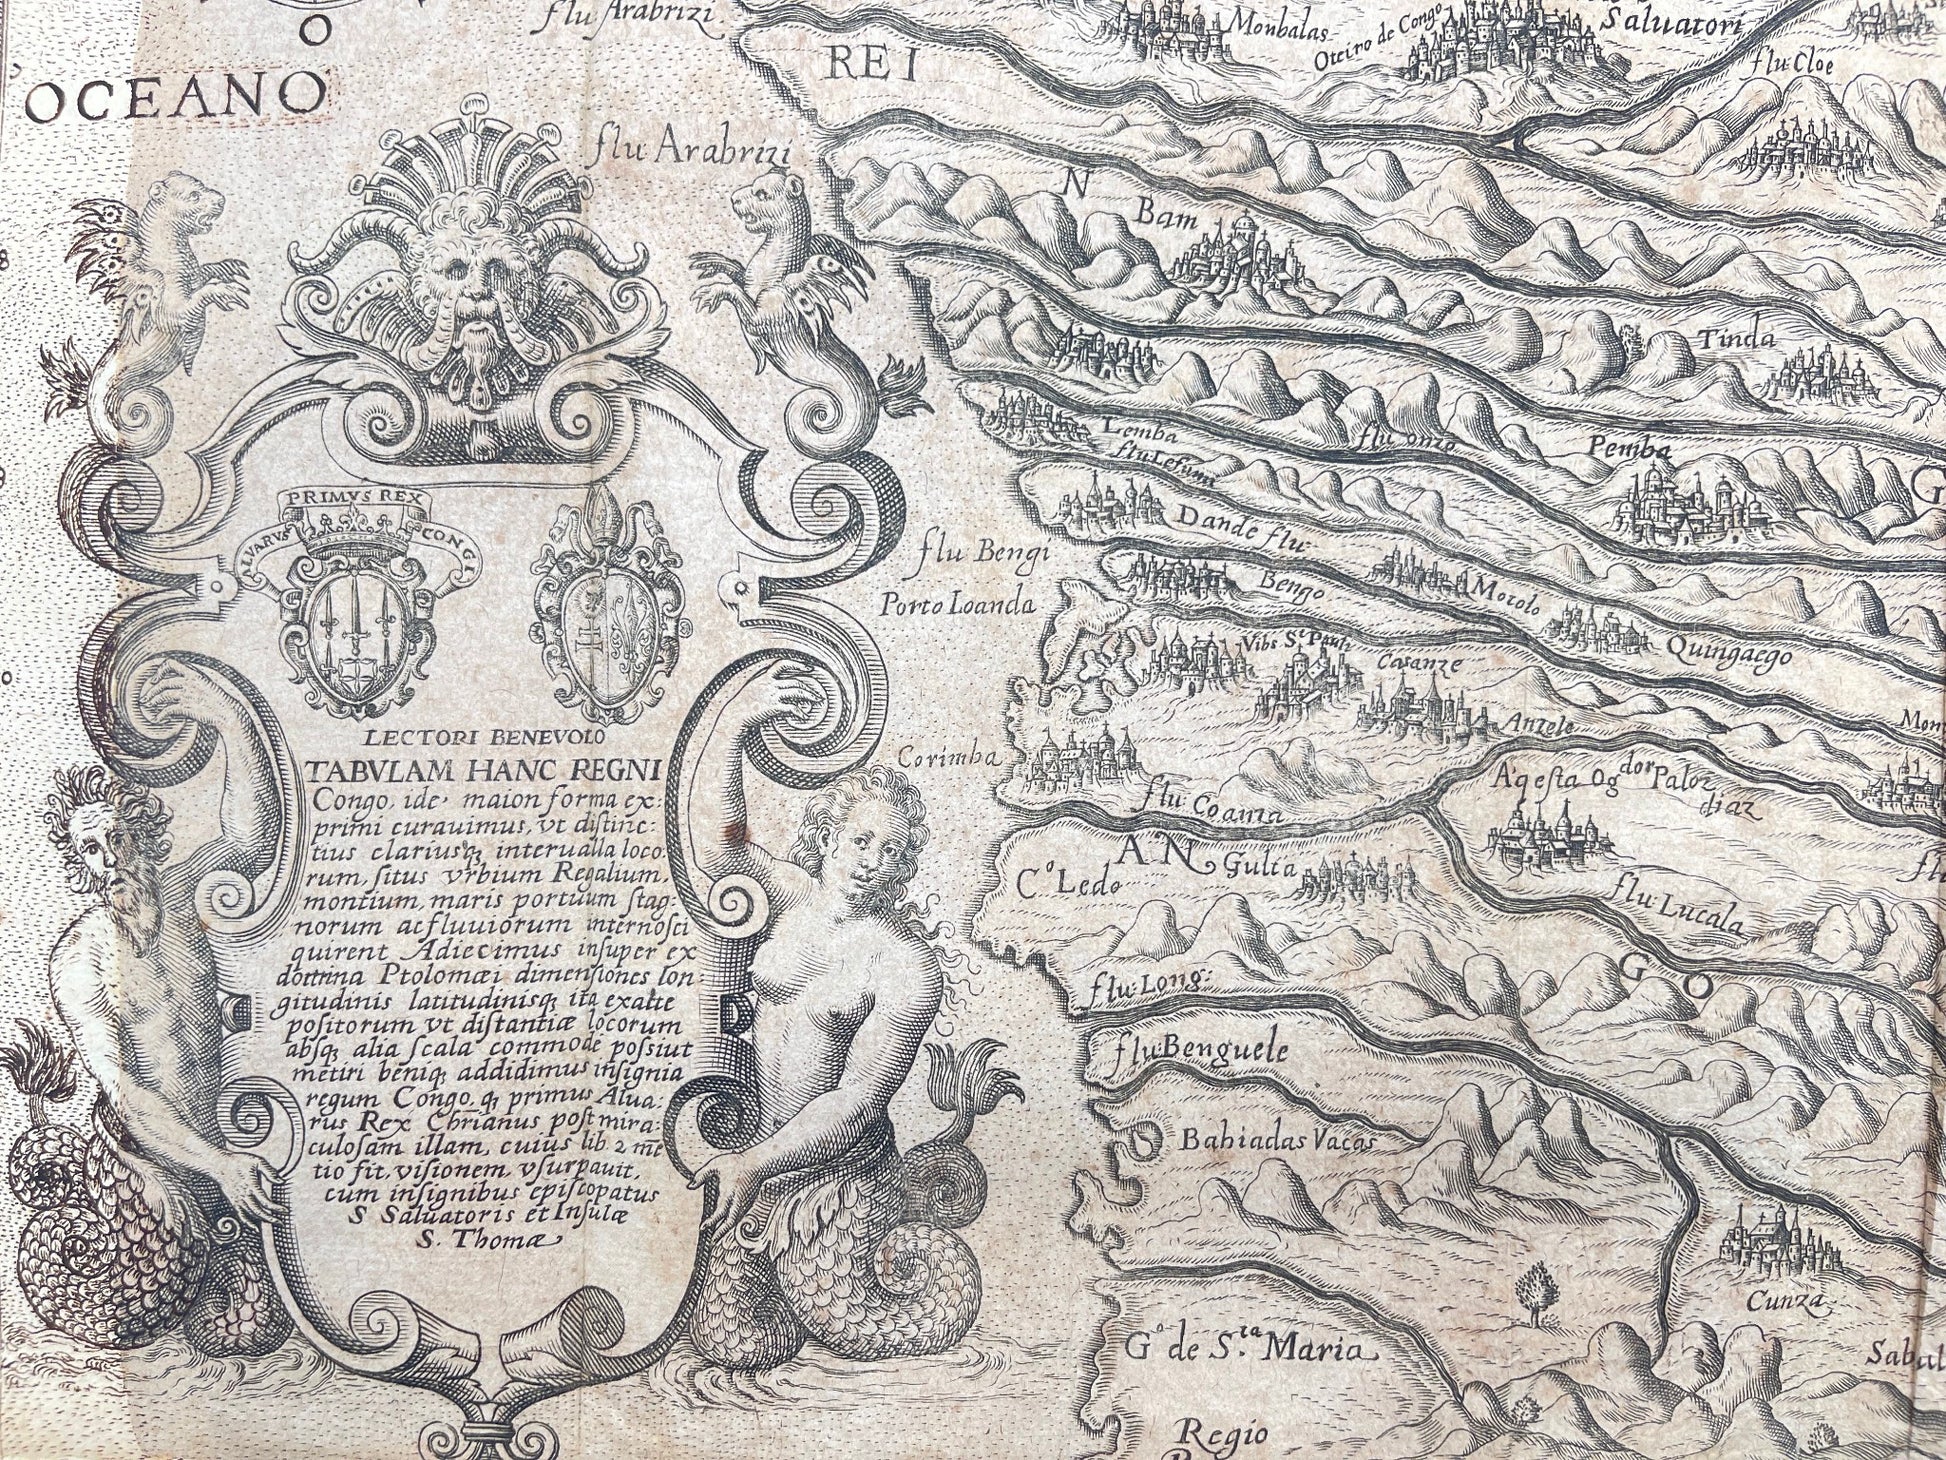 O
OCEANO
flu Arabrizi
flu Arabrizi
REI
Monbalas
Oteiro de Congo
Saluatori
flu: Cloe
N
Bam
Tinda
Lemba
flu Lefuni
flu onzo
Pemba
G
flu Bengi
Dande flu:
Motolo
Bengo
Quingaego
Porto Loanda
Vibs St. Pauli
Casanze
Anzele
Corimba
flu Coania
A'qesta Ogdor Paloz
diaz
AN
Gulta
Co Ledo
flu Lucala
G O
flu: Long:
flu Benguele
Bahiadas Vacas
Cunza
Go de S.ta Maria
Sabal
Regio
PRIMVS REX
ALVARVS
CONGE
LECTORI BENEVOLO
TABVLAM HANC REGNI
Congo, ide, maion forma ex:
primi curauimus, vt distinc:
tius clariusq; interualla loco
rum, situs vrbium Regalium,
montium, maris portuum stag:
norum ac fluuiorum internosci
quirent Adiecimus insuper ex
doctrina Ptolomæi dimensiones lon
gitudinis latitudinisq; ita exacte
positorum vt distantiæ locorum
absq; alia scala commode possiut
metiri beniq; addidimus insignia
regum Congo, q; primus Alua:
rus Rex Chrianus post mira:
culosam illam, cuius lib 2 mē
tio fit, visionem, vsurpauit,
cum insignibus episcopatus
S Saluatoris et Insulæ
S. Thomæ